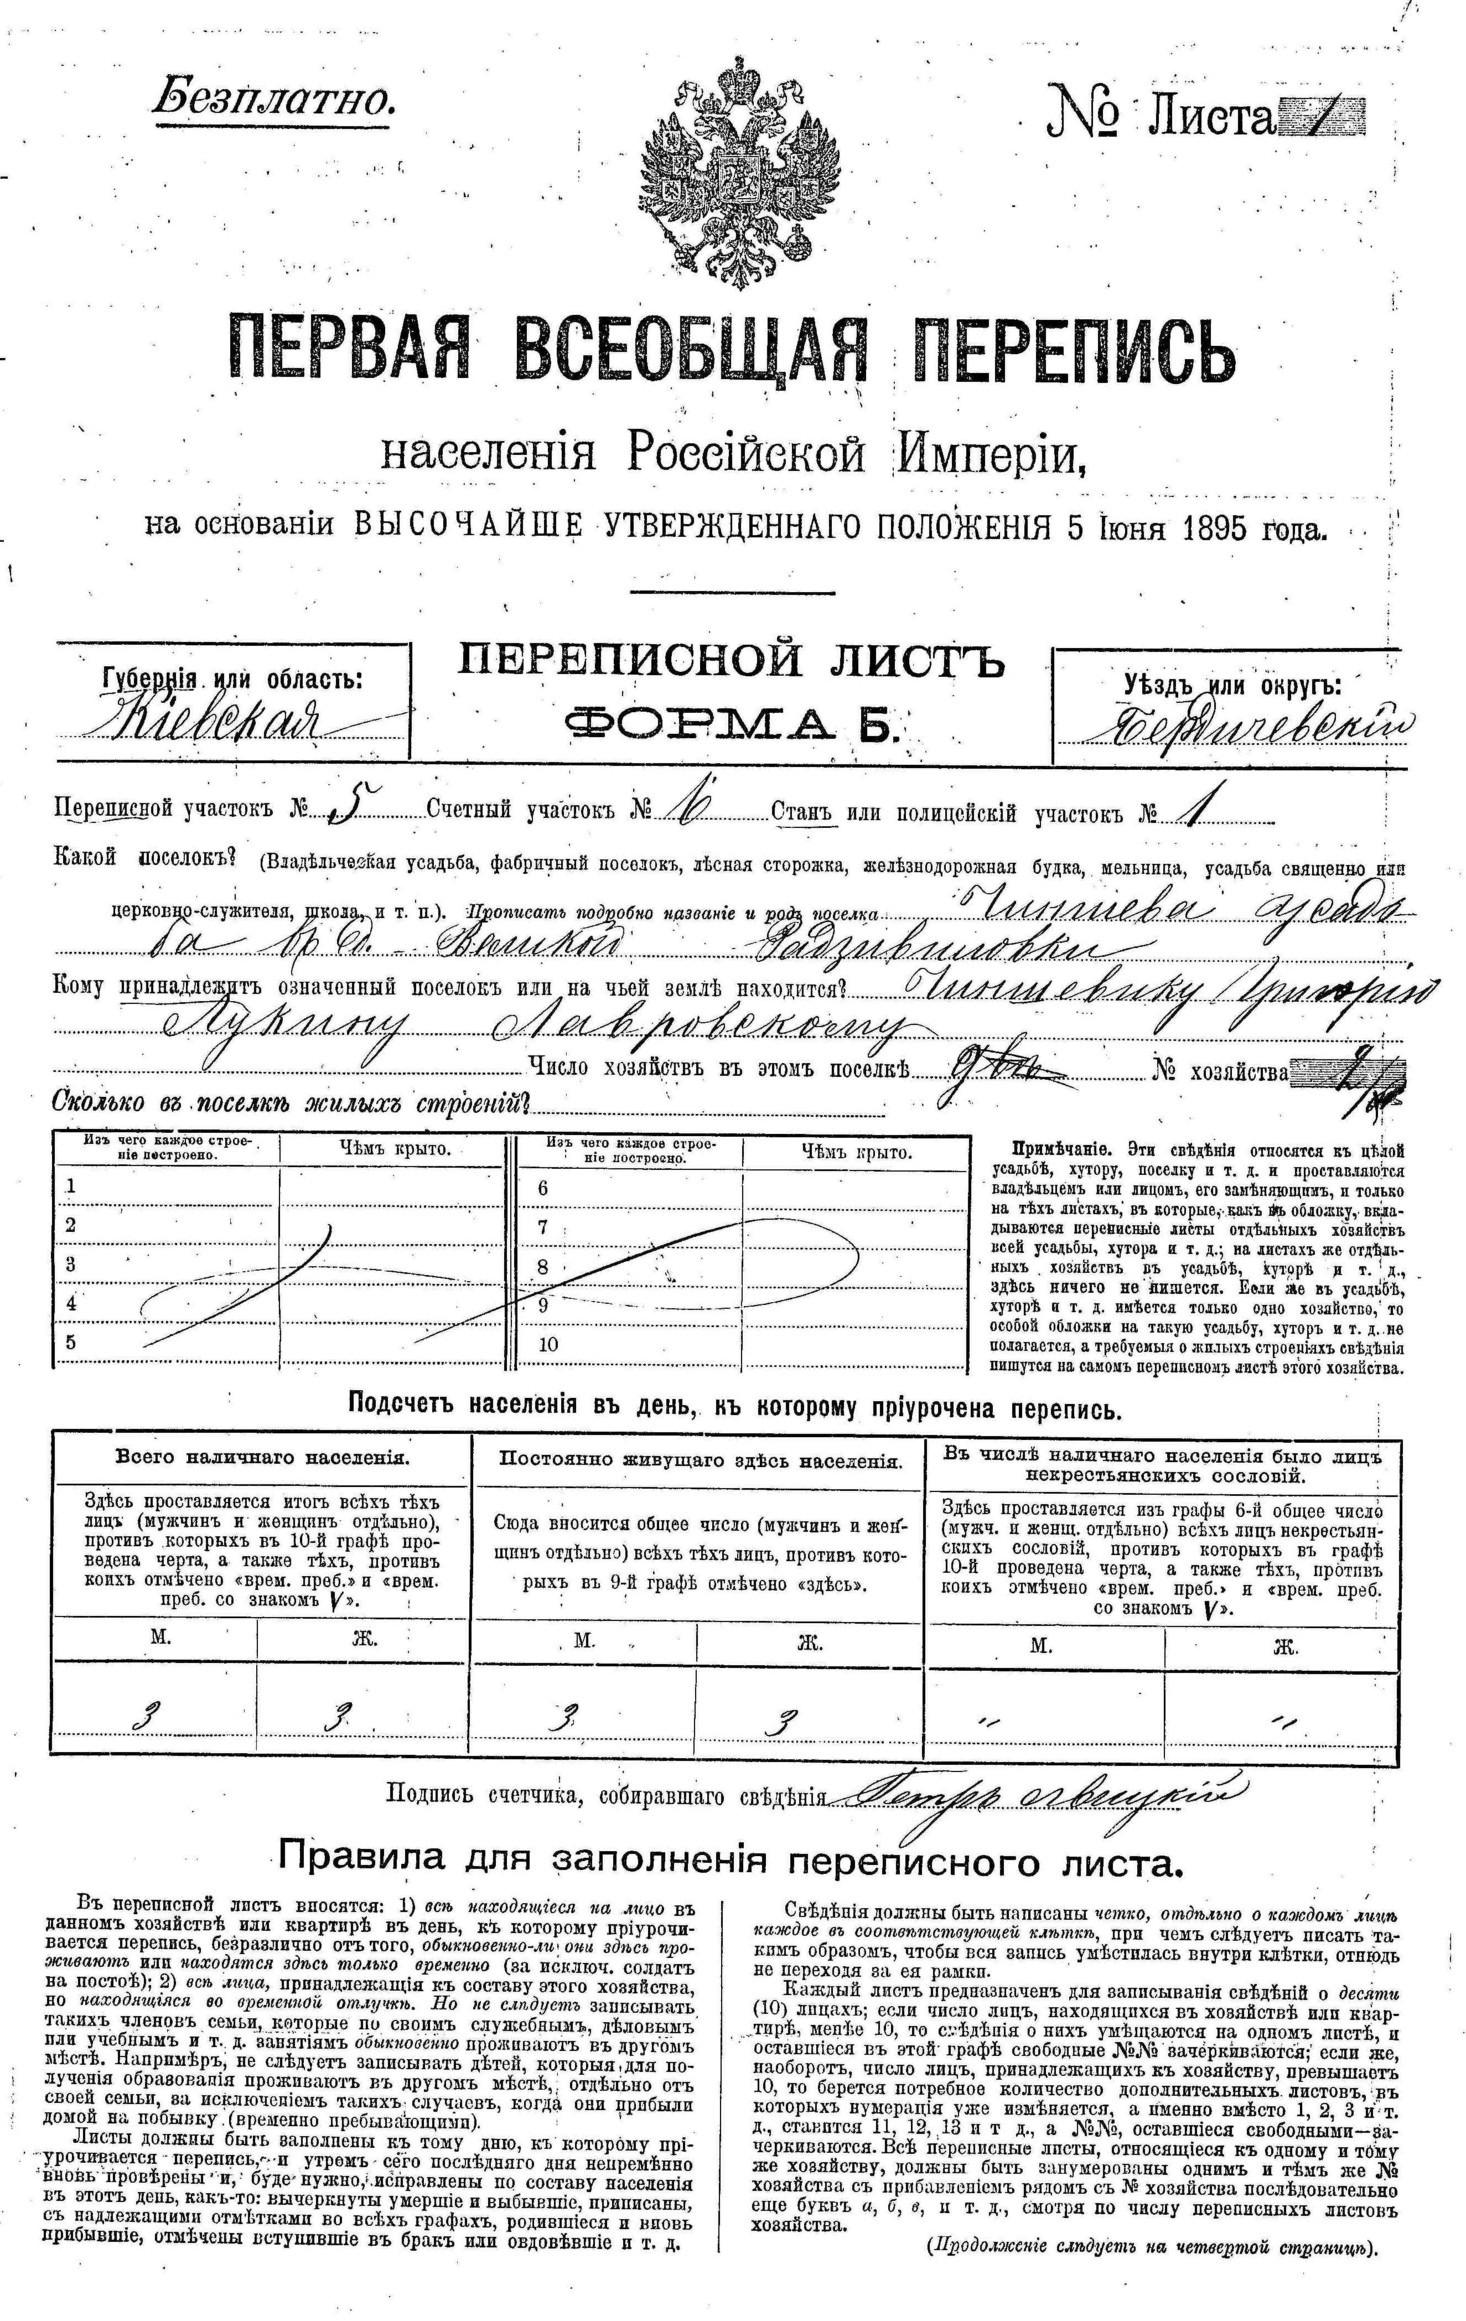 Безплатно.
№ Листа 1
ПЕРВАЯ ВСЕОБЩАЯ ПЕРЕПИСЬ
населенія Россійской Имперіи,
на основаніи ВЫСОЧАЙШЕ УТВЕРЖДЕННАГО ПОЛОЖЕНІЯ 5 Іюня 1895 года.
Губернія или область:
Кіевская
ПЕРЕПИСНОЙ ЛИСТЪ
ФОРМА Б.
Уѣздъ или округъ:
Бердичевскій
Переписной участокъ № 5 Счетный участокъ № 6 Станъ или полицейскій участокъ № 1
Какой поселокъ? (Владѣльческая усадьба, фабричный поселокъ, лѣсная сторожка, желѣзнодорожная будка, мельница, усадьба священно или
церковно-служителя, школа, и т. п.). Прописать подробно названіе и родъ поселка Чиншева усадь
ба въ д. Великой Радзивиловки
Кому принадлежитъ означенный поселокъ или на чьей землѣ находится? Чиншевику Григорію
Лукину Лавровскому
Число хозяйствъ въ этомъ поселкѣ двѣ № хозяйства 2
Сколько въ поселкѣ жилыхъ строеній?
Изъ чего каждое строе-
ніе построено.
Чѣмъ крыто.
Изъ чего каждое строе-
ніе построено.
Чѣмъ крыто.
1 6
2 7
3 8
4 9
5 10
Примѣчаніе. Эти свѣдѣнія относятся къ цѣлой
усадьбѣ, хутору, поселку и т. д. и проставляются
владѣльцемъ или лицомъ, его замѣняющимъ, и только
на тѣхъ листахъ, въ которые, какъ въ обложку, вкла-
дываются переписные листы отдѣльныхъ хозяйствъ
всей усадьбы, хутора и т. д.; на листахъ же отдѣль-
ныхъ хозяйствъ въ усадьбѣ, хуторѣ и т. д.,
здѣсь ничего не пишется. Если же въ усадьбѣ,
хуторѣ и т. д. имѣется только одно хозяйство, то
особой обложки на такую усадьбу, хуторъ и т. д. не
полагается, а требуемыя о жилыхъ строеніяхъ свѣдѣнія
пишутся на самомъ переписномъ листѣ этого хозяйства.
Подсчетъ населенія въ день, къ которому пріурочена перепись.
Всего наличнаго населенія.
Здѣсь проставляется итогъ всѣхъ тѣхъ
лицъ (мужчинъ и женщинъ отдѣльно),
противъ которыхъ въ 10-й графѣ про-
ведена черта, а также тѣхъ, противъ
коихъ отмѣчено «врем. преб.» и «врем.
преб. со знакомъ V».
Постоянно живущаго здѣсь населенія.
Сюда вносится общее число (мужчинъ и жен-
щинъ отдѣльно) всѣхъ тѣхъ лицъ, противъ кото-
рыхъ въ 9-й графѣ отмѣчено «здѣсь».
Въ числѣ наличнаго населенія было лицъ
некрестьянскихъ сословій.
Здѣсь проставляется изъ графы 6-й общее число
(мужч. и женщ. отдѣльно) всѣхъ лицъ некрестьян-
скихъ сословій, противъ которыхъ въ графѣ
10-й проведена черта, а также тѣхъ, противъ
коихъ отмѣчено «врем. преб.» и «врем. преб.
со знакомъ V».
М. Ж. М. Ж. М. Ж.
3 3 3 3 " "
Подпись счетчика, собиравшаго свѣдѣнія Петръ
Правила для заполненія переписного листа.
Въ переписной листъ вносятся: 1) всѣ находящіеся на лицо въ
данномъ хозяйствѣ или квартирѣ въ день, къ которому пріурочи-
вается перепись, безразлично отъ того, обыкновенно-ли они здѣсь про-
живаютъ или находятся здѣсь только временно (за исключ. солдатъ
на постоѣ); 2) всѣ лица, принадлежащія къ составу этого хозяйства,
но находящіяся во временной отлучкѣ. Но не слѣдуетъ записывать
такихъ членовъ семьи, которые по своимъ служебнымъ, дѣловымъ
или учебнымъ и т. д. занятіямъ обыкновенно проживаютъ въ другомъ
мѣстѣ. Напримѣръ, не слѣдуетъ записывать дѣтей, которыя для по-
лученія образованія проживаютъ въ другомъ мѣстѣ, отдѣльно отъ
своей семьи, за исключеніемъ такихъ случаевъ, когда они прибыли
домой на побывку (временно пребывающими).
Листы должны быть заполнены къ тому дню, къ которому прі-
урочивается перепись, и утромъ сего послѣдняго дня непремѣнно
вновь провѣрены и, буде нужно, исправлены по составу населенія
въ этотъ день, какъ-то: вычеркнуты умершіе и выбывшіе, приписаны,
съ надлежащими отмѣтками во всѣхъ графахъ, родившіеся и вновь
прибывшіе, отмѣчены вступившіе въ бракъ или овдовѣвшіе и т. д.
Свѣдѣнія должны быть написаны четко, отдѣльно о каждомъ лицѣ
каждое въ соотвѣтствующей клѣткѣ, при чемъ слѣдуетъ писать та-
кимъ образомъ, чтобы вся запись умѣстилась внутри клѣтки, отнюдь
не переходя за ея рамки.
Каждый листъ предназначенъ для записыванія свѣдѣній о десяти
(10) лицахъ; если число лицъ, находящихся въ хозяйствѣ или квар-
тирѣ, менѣе 10, то свѣдѣнія о нихъ умѣщаются на одномъ листѣ, и
оставшіеся въ этой графѣ свободные №№ зачеркиваются; если же,
наоборотъ, число лицъ, принадлежащихъ къ хозяйству, превышаетъ
10, то берется потребное количество дополнительныхъ листовъ, въ
которыхъ нумерація уже измѣняется, а именно вмѣсто 1, 2, 3 и т.
д., ставится 11, 12, 13 и т д., а №№, оставшіеся свободными—за-
черкиваются. Всѣ переписные листы, относящіеся къ одному и тому
же хозяйству, должны быть занумерованы однимъ и тѣмъ же №
хозяйства съ прибавленіемъ рядомъ съ № хозяйства послѣдовательно
еще буквъ а, б, в, и т. д., смотря по числу переписныхъ листовъ
хозяйства.
(Продолженіе слѣдуетъ на четвертой страницѣ).